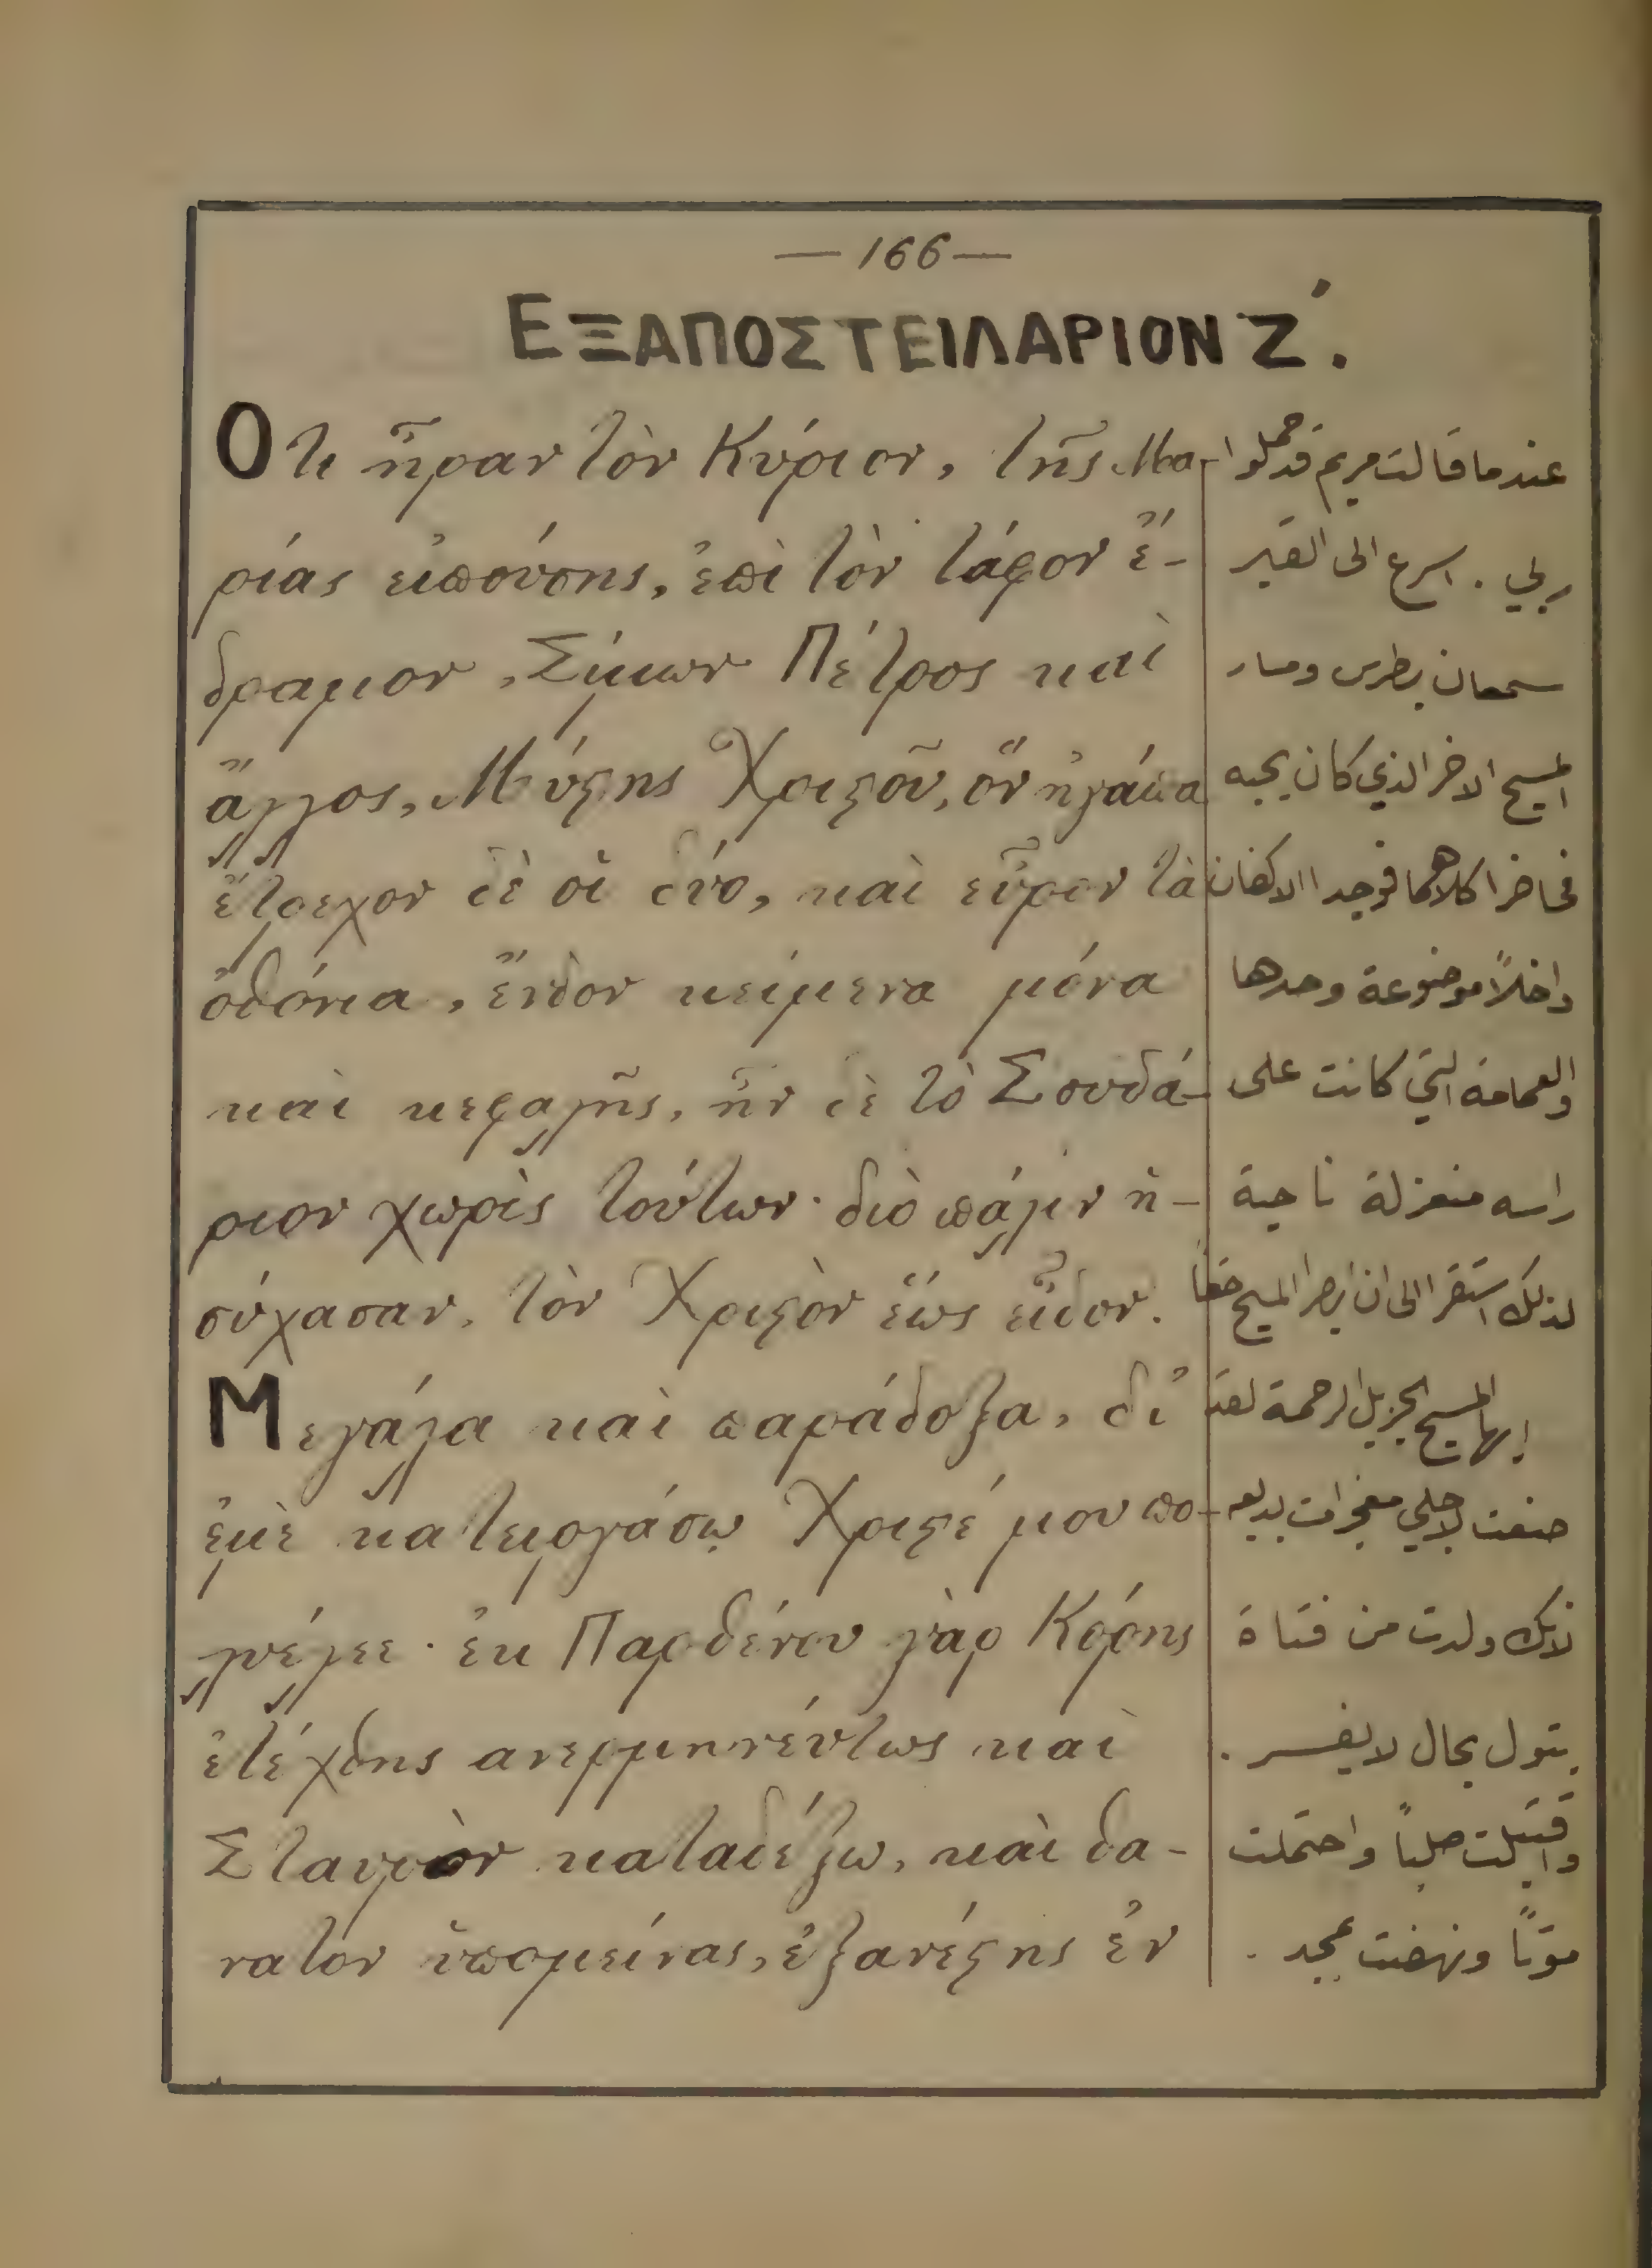 — 166 —
ΕΞΑΠΟΣΤΕΙΛΑΡΙΟΝ Ζ΄.
Οτι ἦραν τὸν Κύριον, τῆς Μα-
ρίας εἰπούσης, ἐπὶ τὸν τάφον ἔ-
δραμον, Σίμων Πέτρος καὶ
ἄλλος, Μύςης Χριςοῦ, ὃν ἠγάπα
ἔτρεχον δὲ οἱ δύο, καὶ εὗρον τὰ
ὀθόνια, ἔνδον κείμενα μόνα
καὶ κεφαλῆς, ἦν δὲ τὸ Σουδά-
ριον χωρὶς τούτων· διὸ πάλιν ἡ-
σύχασαν, τὸν Χριςὸν ἕως εἶδον.
Μεγάλα καὶ παράδοξα, δι᾽
ἐμὲ κατειργάσω Χριςέ μου πο-
λυέλεε· ἐκ Παρθένου γὰρ Κόρης
ἐτέχθης ανερμηνεύτως καὶ
Σταυρὸν καταδέξω, καὶ θα-
νατον ὑπομείνας, ἐξανέςης ἐν
عندما قالت مريم قد حملوا
ربي . اسرع الى القبر
سمعان بطرس ومسار
المسيح الاخر الذي كان يحبه
فحاضرا كلاهما فوجدا الاكفان
داخلاً موضوعة وحدها
والعمامة التي كانت على
راسه منعزلة ناحية
لذلك استقرا الى ان ابصرا المسيح حقا
ايها المسيح الجزيل الرحمة لقد
صنعت لاجلي معجزات بديعه
لانك ولدت من فتاة
بتول بحال لا يفسر .
واقتبلت صلباً واحتملت
موتاً ونهضت بمجد .